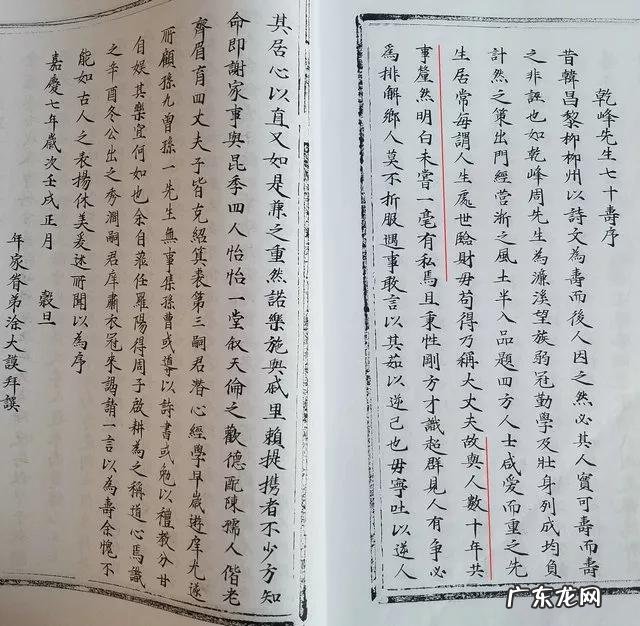 乾峰先生七十壽序
昔韓昌黎柳柳州以詩文為壽而後人因之然必其人實可壽而壽
之非誣也如乾峰周先生為濂溪望族弱冠勤學及壯身列成均負
計然之策出門經營浙之風土半入品題四方人士咸愛而重之先
生居常每謂人生處世臨財毋苟得乃稱大丈夫故與人數十年共
事釐然明白未嘗一毫有私焉且秉性剛方才識超群見人有爭必
為排解鄉人莫不折服遇事敢言以其茹以逆己也毋寧吐以逆人
其居心以直又如是兼之重然諾樂施與戚里賴提携者不少方知
命即謝家事與昆季四人怡怡一堂叙天倫之歡德配陳孺人偕老
齊眉育四丈夫子皆克紹箕裘第三嗣君潛心經學早歲遊庠尤邃
所顧孫九曾孫一先生無事集孫曹或導以詩書或勉以禮教分甘
自娱其樂宜何如也余自蒞任羅陽得周子啟耕為之稱道心焉識
之辛酉冬公出之秀澗嗣君庠肅衣冠來謁請一言以為壽余愧不
能如古人之表揚休美爰述所聞以為序
嘉慶七年歲次壬戌正月 穀旦
年家眷弟淦大謨拜譔
广东龙网